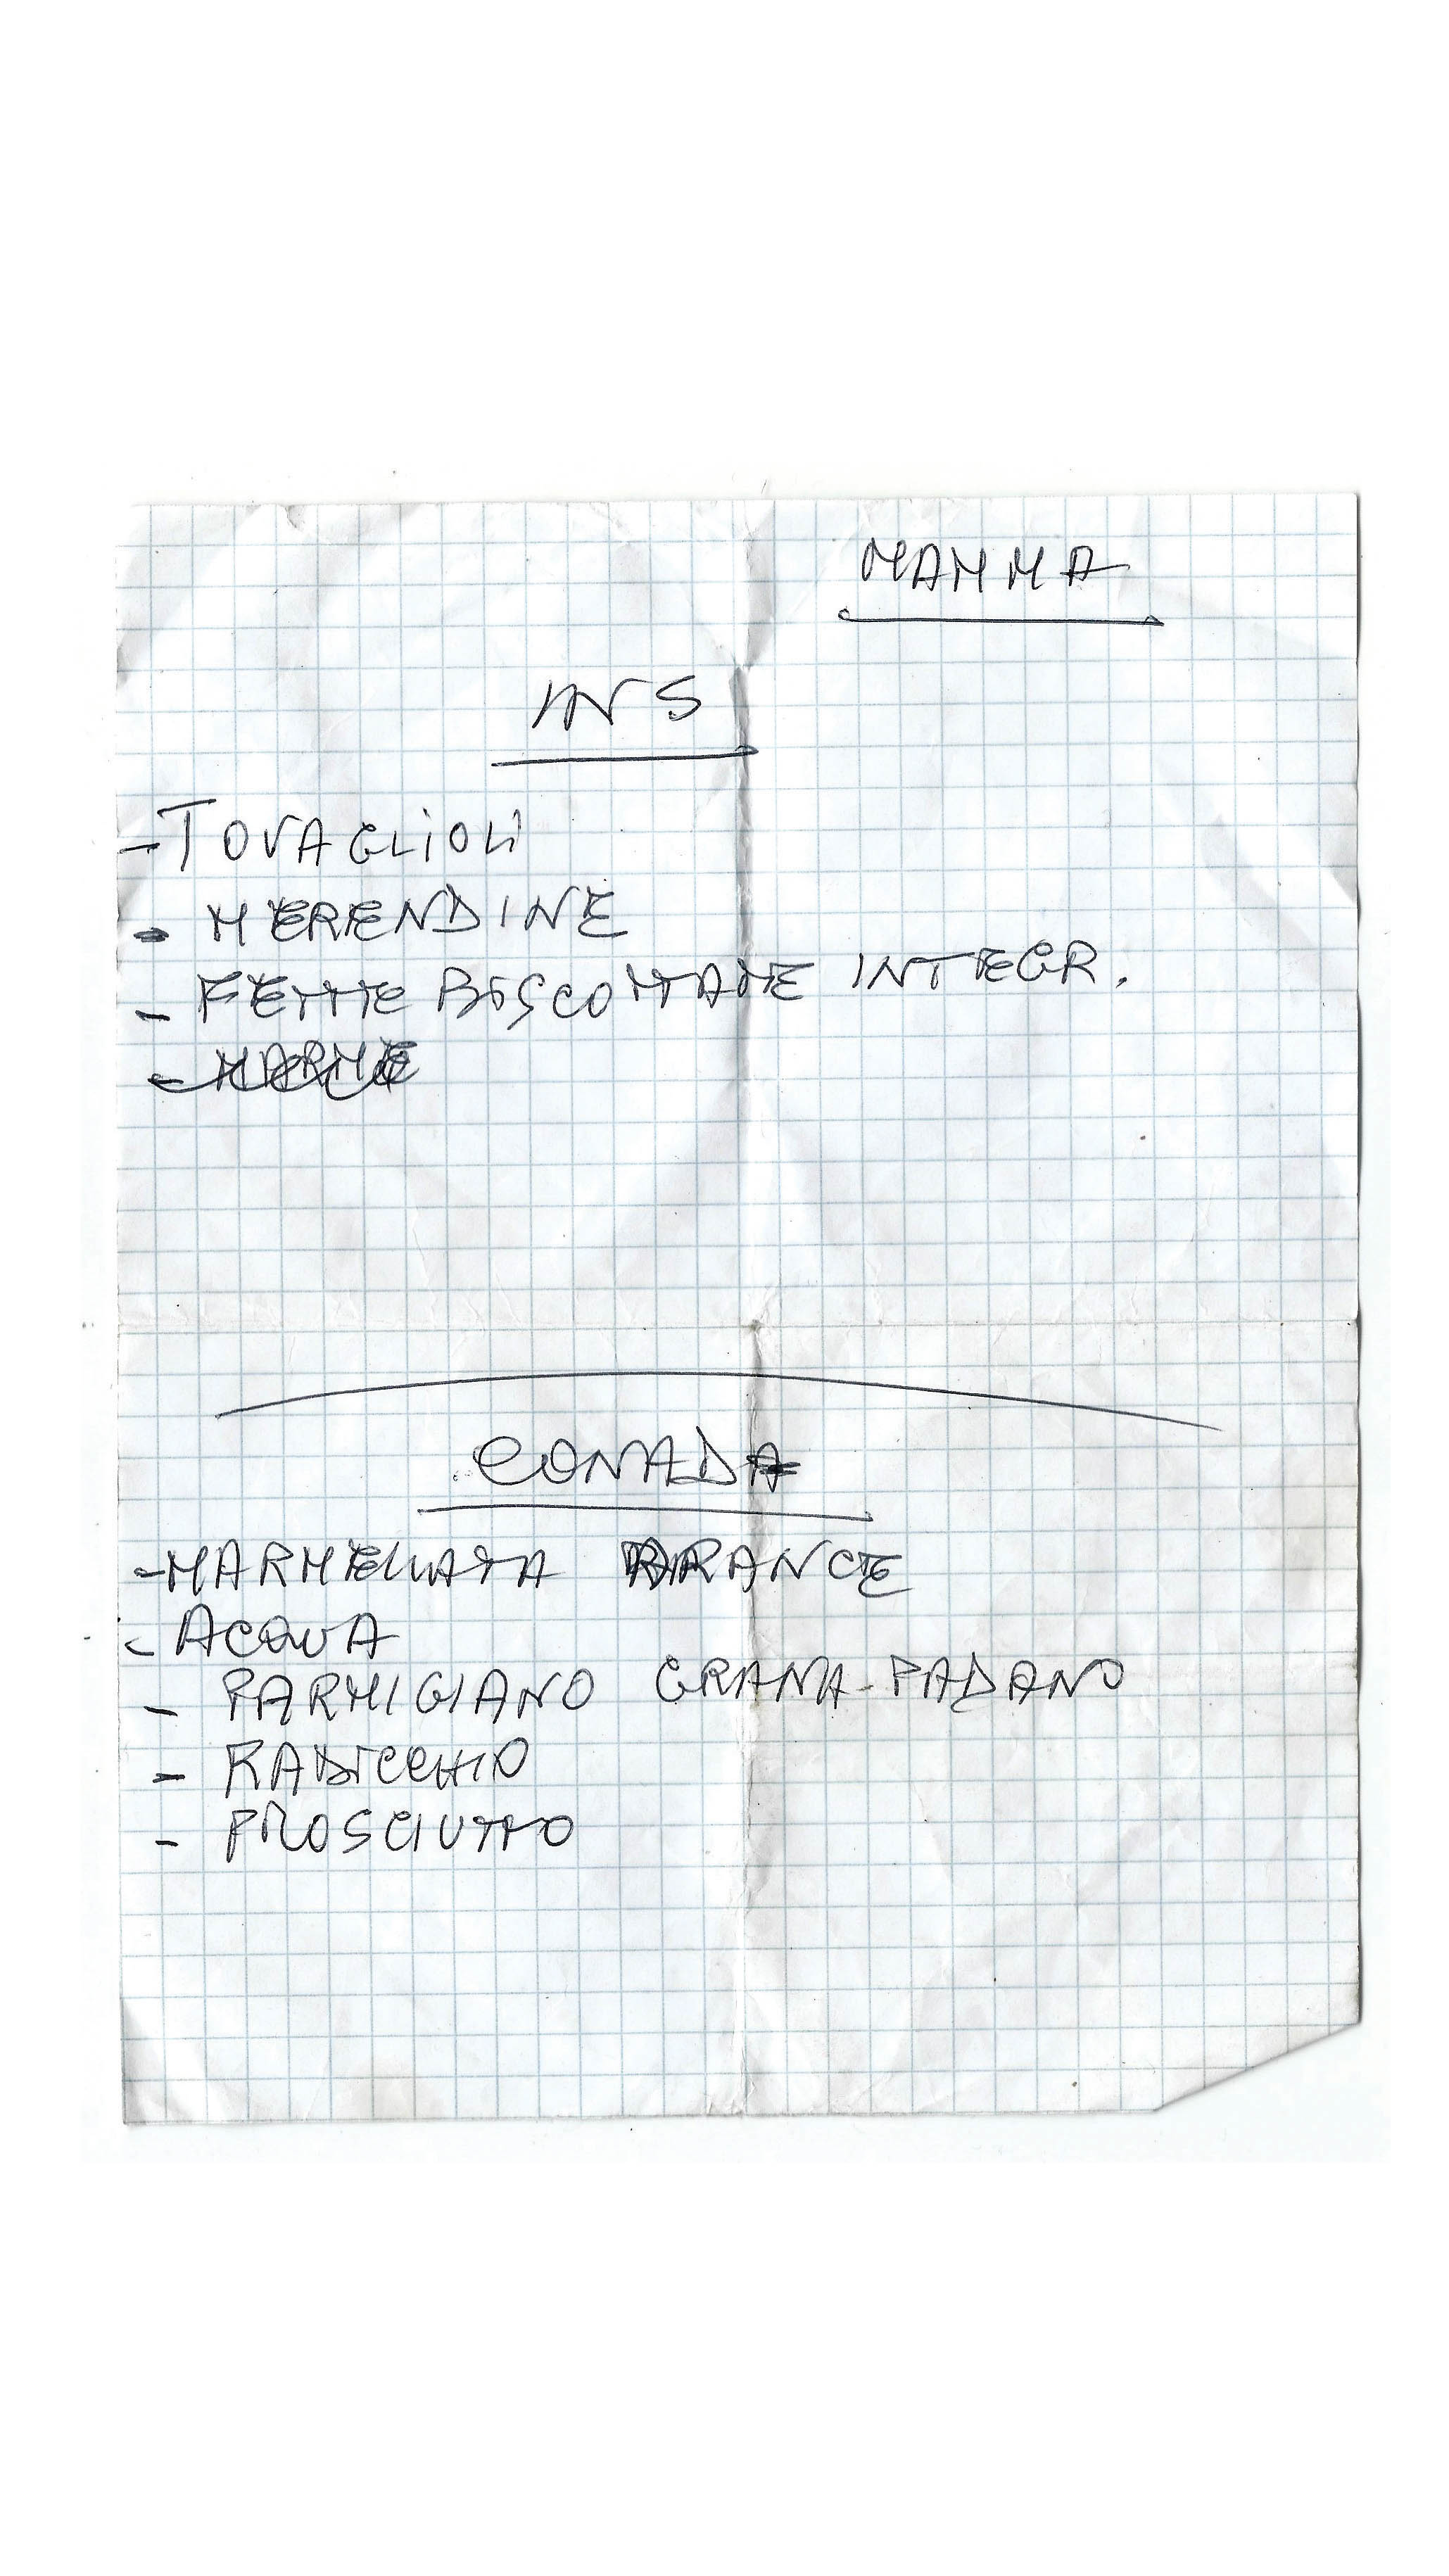 MAMMA
INS
- TOVAGLIOLI
- MERENDINE
- FETTE BISCOTTATE INTEGR.
- MARME
CONADA
- MARMELLATA ARANCE
- ACQUA
- PARMIGIANO GRANA-PADANO
- RADICCHIO
- PROSCIUTTO